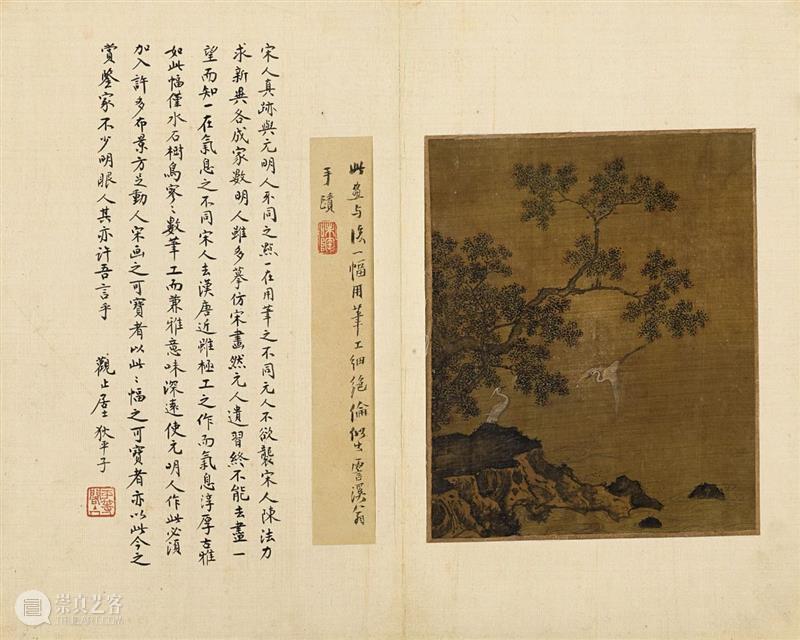 此畫与後一幅用筆工細絕倫似出雪溪翁
手蹟
宋人真跡與元明人不同之點一在用筆之不同元人不欲襲宋人陳法力
求新異各成家數明人雖多摹仿宋畫然元人遺習終不能去盡一
望而知一在氣息之不同宋人去漢唐近雖極工之作而氣息淳厚古雅
如此幅僅水石樹鳥寥〻數筆工而兼雅意味深遠使元明人作此必須
加入許多布景方足動人宋画之可寶者以此〻幅之可寶者亦以此今之
賞鑒家不少明眼人其亦許吾言乎 觀止居士 狄平子
崇真艺客
www.trueart.com